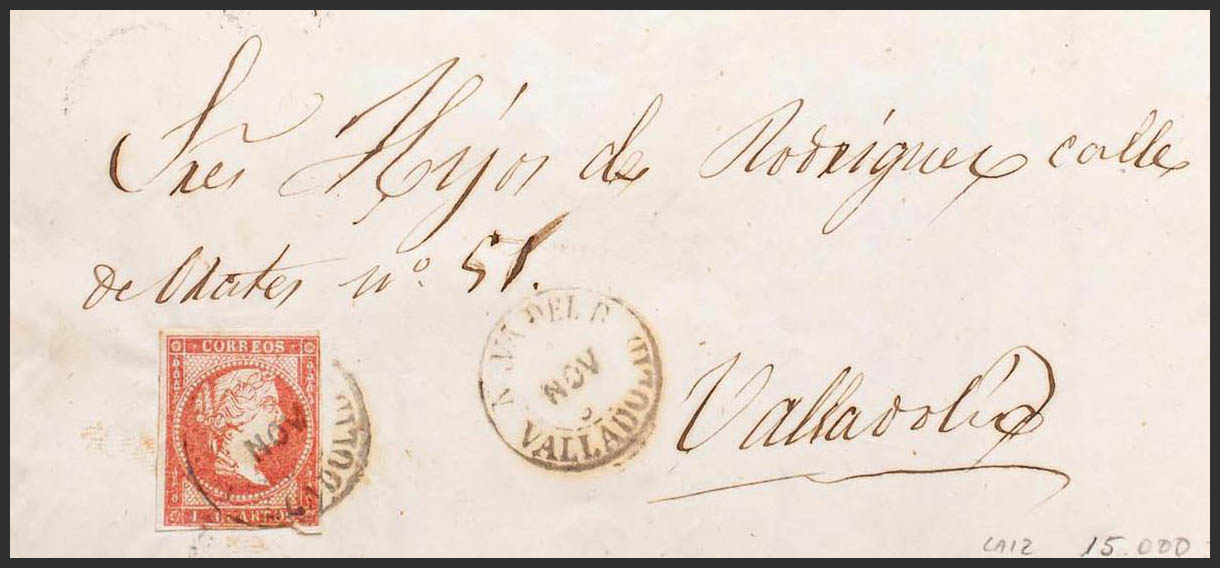 Sres Hijos de Rodriguez calle
de Orates nº 51.
CORREOS
NOV
VALLADOLID
NOV
VALLADOLID
Valladolid
15.000